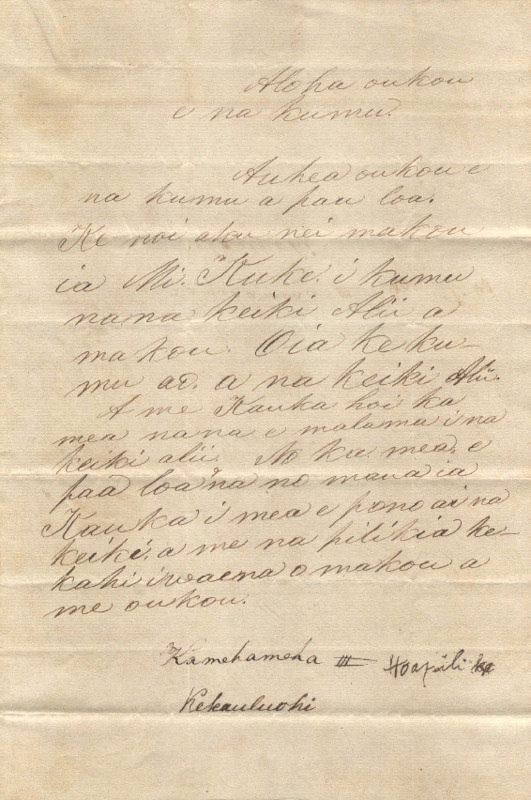 Aloha oukou
e na kumu.
Auhea oukou e
na kumu a pau loa.
Ke noi aku nei makou
ia Mi. Kuke. i kumu
nana keiki Alii a
makou. Oia ke ku-
mu ao. a na keiki Alii.
A me Kauka hoi ka
mea nana e malama i na
keiki alii. No ka mea, e
paa loa na no mana ia
Kauka i mea e pono ai na
keiki, a me na pilikia ke-
kahi iwaena o makou a
me oukou.
Kamehameha III Hoapili
Kekauluohi